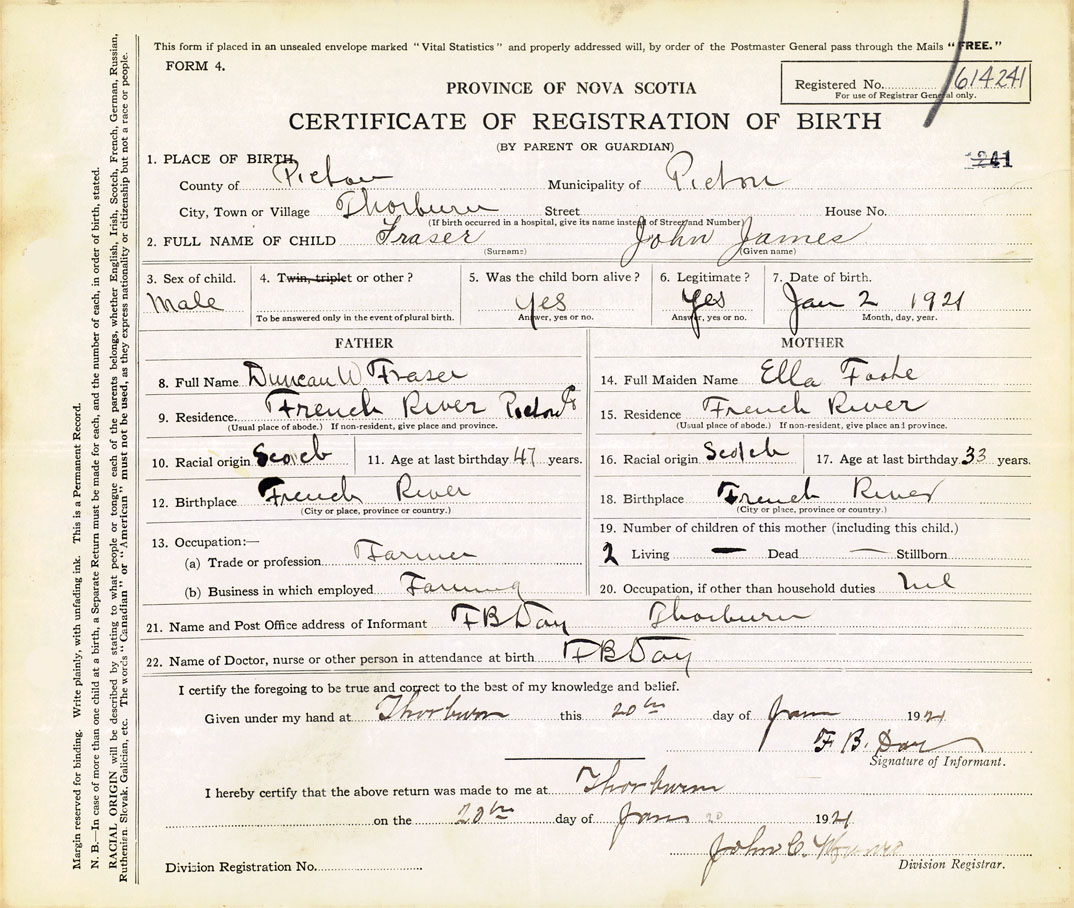 This form if placed in an unsealed envelope marked "Vital Statistics" and properly addressed will, by order of the Postmaster General pass through the Mails "FREE."
FORM 4.
Registered No. 614241
For use of Registrar General only.
PROVINCE OF NOVA SCOTIA
CERTIFICATE OF REGISTRATION OF BIRTH
(BY PARENT OR GUARDIAN)
1241
1. PLACE OF BIRTH,
County of Pictou Municipality of Pictou
City, Town or Village Thorburn Street House No.
(If birth occurred in a hospital, give its name instead of Street and Number)
2. FULL NAME OF CHILD Fraser John James
(Surname) (Given name)
3. Sex of child. 4. Twin, triplet or other? 5. Was the child born alive? 6. Legitimate? 7. Date of birth.
Male yes Yes Jan 2 1921
To be answered only in the event of plural birth. Answer, yes or no. Answer, yes or no. Month, day, year.
FATHER MOTHER
8. Full Name Duncan W Fraser 14. Full Maiden Name Ella
9. Residence. French River Pictou Co 15. Residence French River
(Usual place of abode.) If non-resident, give place and province. (Usual place of abode.) If non-resident, give place and province.
10. Racial origin Scotch 11. Age at last birthday 47 years. 16. Racial origin Scotch 17. Age at last birthday 33 years.
12. Birthplace French River 18. Birthplace French River
(City or place, province or country.) (City or place, province or country.)
13. Occupation:— 19. Number of children of this mother (including this child.)
(a) Trade or profession Farmer 2 Living — Dead — Stillborn
(b) Business in which employed Farming 20. Occupation, if other than household duties nil
21. Name and Post Office address of Informant F B Day Thorburn
22. Name of Doctor, nurse or other person in attendance at birth F B Day
I certify the foregoing to be true and correct to the best of my knowledge and belief.
Given under my hand at Thorburn this 20th day of Jan 1921
F. B. Day
Signature of Informant.
I hereby certify that the above return was made to me at Thorburn
on the 20th day of Jan 20 1921
John C.
Division Registration No. Division Registrar.
Margin reserved for binding. Write plainly, with unfading ink. This is a Permanent Record.
N. B.—In case of more than one child at a birth, a Separate Return must be made for each, and the number of each, in order of birth, stated.
RACIAL ORIGIN will be described by stating to what people or tongue each of the parents belongs, whether English, Irish, Scotch, French, German, Russian,
Ruthenian, Slovak, Galician, etc. The words "Canadian" or "American" must not be used, as they express nationality or citizenship but not a race or people.